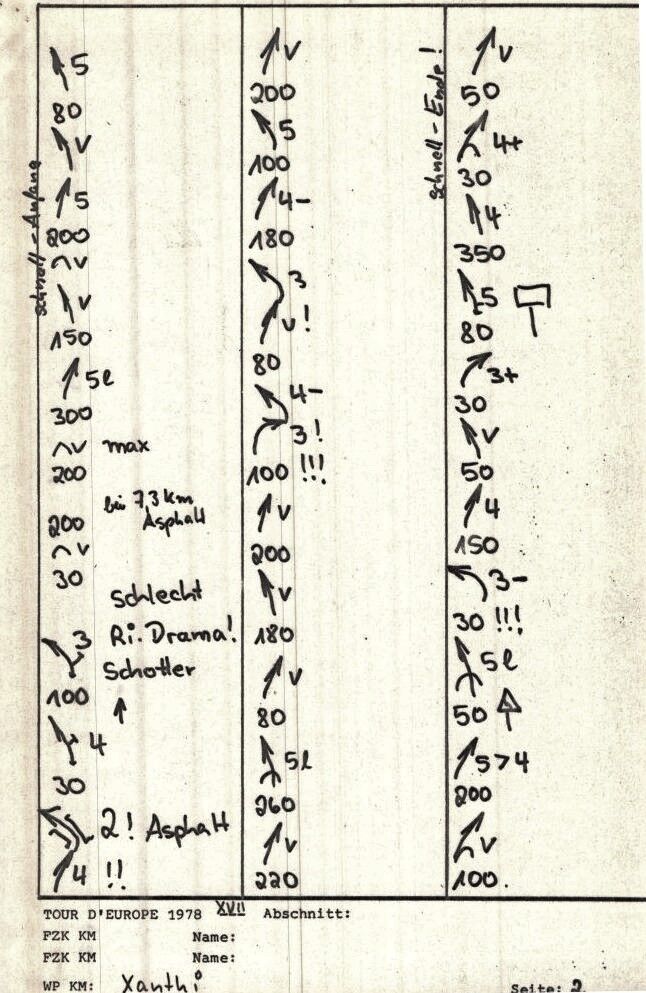 5
80
v
5
200
v
v
150
5l
300
v max
200
bis 7,3 km
200 Asphalt
v
30
schlecht
3 Ri. Drama!
Schotter
100
4
30
2! Asphalt
4 !!
schnell - Anfang
v
200
5
100
4-
180
3
v!
80
4-
3!
100 !!!
v
200
v
180
v
80
5l
260
v
220
schnell - Ende!
v
50
4+
30
4
350
5
80
3+
30
v
50
4
150
3-
30 !!!
5l
50
5>4
200
v
100.
TOUR D'EUROPE 1978 XVII Abschnitt:
FZK KM Name:
FZK KM Name:
WP KM: Xanthi Seite: 2